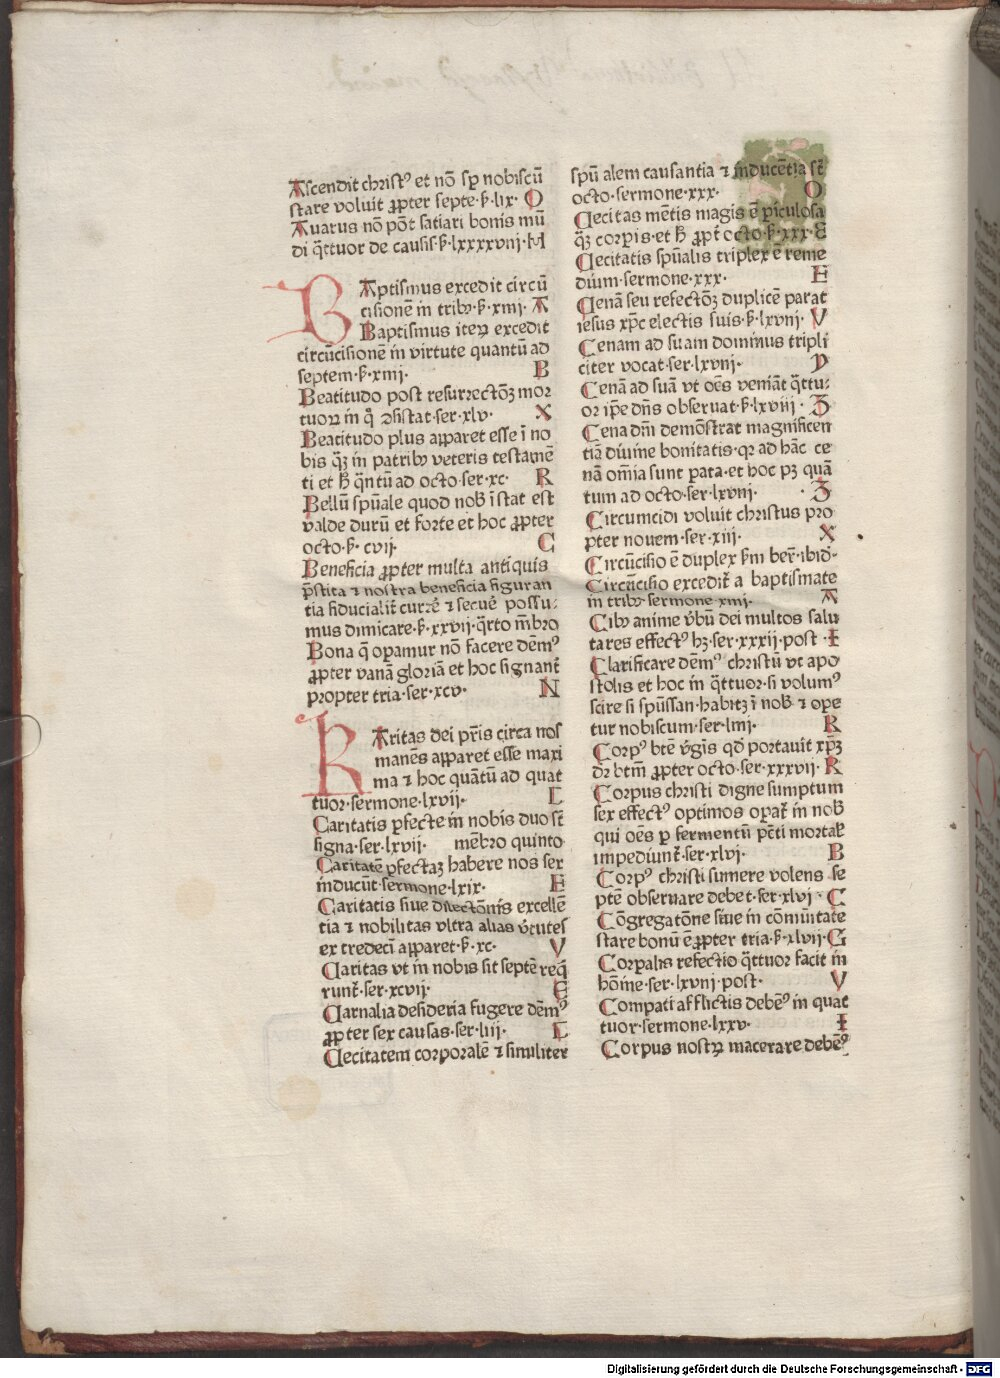 Ascendit christꝰ et nō sꝑ nobiscū
stare voluit ꝓpter septē·ẜ·lix· O
Auarus nō pōt satiari bonis mū
di q̈ttuor de causis·ẜ·lxxxxvnj·M
BAptismus excedit circū
cisionē in tribꝰ·ẜ·xmj· A
Baptismus iteꝝ excedit
circūcisionē in virtute quantū ad
septem·ẜ·xmj· B
Beatitudo post resurrectōꝫ mor
tuoꝝ in q̄ ꝯsistat·ser·xlv· X
Beatitudo plus apparet esse ī no
bis q̄ꝫ in patribꝰ veteris testamē
ti et ħ q̈ntū ad octo·ser·xc· R
Bellū spūale quod nob̄ īstat est
valde durū et forte et hoc ꝓpter
octo·ẜ· cvij· C
Beneficia ꝓpter multa antiquis
p̄stita ⁊ nostra beneficia figuran
tia fiducialit̄ currē ⁊ secuē possu-
mus dimicare·ẜ·xxvij·q̈rto m̄bro
Bona q̄ oꝑamur nō facere dēmꝰ
ꝓpter vanā gloriā et hoc signant̄
propter tria·ser·xcv· N
KAritas dei pr̄is circa nos
manēs apparet esse maxi
ma ⁊ hoc quātū ad quat
tuor·sermone·lxvij· C
Caritatis ꝑfecte in nobis duo st̄
signa·ser·lxvij· mēbro quinto
Caritatē ꝑfectaꝫ habere nos sex
inducūt·sermone·lxix· E
Caritatis siue dilectōnis excellē
tia ⁊ nobilitas vltra alias v̄tutes
ex tredeci apparet·ẜ·xc· V
Caritas vt in nobis sit septē req̄
runt̄·ser·xcvij· E
Carnalia desideria fugere dēmꝰ
ꝓpter sex causas·ser·liij· C
Cecitatem corporalē ⁊ similiter
spū alem causantia ⁊ inducētia st̄
octo·sermone·xxx· O
Cecitas mētis magis ē ꝑiculosa
q̄ꝫ corpis·et ħ ꝓpt̄ octo·ẜ·xxx·E
Cecitatis spūalis triplex ē reme
dium·sermone·xxx· E
Cenā seu refectōꝫ duplicē parat
iesus xp̄c electis suis·ẜ·lxvnj· V
Cenam ad suam dominus tripli
citer vocat·ser·lxvnj· Y
Cenā ad suā vt oēs veniāt q̈ttu-
or ip̄e dn̄s obseruat·ẜ·lxviij· Z
Cena dn̄i demōstrat magnificen
tiā diuine bonitatis·qꝛ ad hāc ce
nā om̄ia sunt ꝑata·et hoc pꝫ quā
tum ad octo·ser·lxvnj· ·Z
Circumcidi voluit christus pro
pter nouem·ser·xiij· X
Circūcisio ē duplex ẜm ber̄·ibid·
Circūcisio excedit̄ a baptismate
in tribꝰ·sermone·xmj· A
Cibꝰ anime v̄bū dei multos salu
tares effectꝰ hꝫ·ser·xxxij·post ·I
Clarificare dēmꝰ christū vt apo
stolis et hoc in q̈ttuor·si volumꝰ
scire si spūssan·habitꝫ ī nob̄ ⁊ ope
tur nobiscum·ser·lmj· R
Corpꝰ btē v̄gīs qd̄ portauit xp̄ꝫ
dr̄ btm̄ ꝓpter octo·ser·xxxvij· R
Corpus christi digne sumptum
sex effectꝰ optimos oꝑat̄ in nob̄
qui oēs ꝑ fermentū pcti mortał
impediunt̄·ser·xlvj· B
Corpꝰ christi sumere volens se
ptē obseruare debet·ser·xlvj· C
Cōgregatōne siue in cōmūitate
stare bonū ē ꝓpter tria·ẜ·xlvij·G
Corpalis refectio q̈ttuor facit in
hōine·ser·lxvnj·post· V
Compati afflictis debēꝰ in quat
tuor·sermone·lxxv· I
Corpus nostꝝ macerare debēꝰ
Digitalisierung gefördert durch die Deutsche Forschungsgemeinschaft - DFG